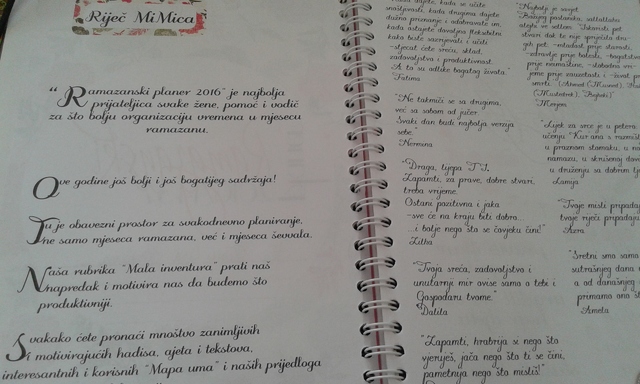 Riječ MiMica
“Ramazanski planer 2016” je najbolja
prijateljica svake žene, pomoć i vodič
za što bolju organizaciju vremena u mjesecu
ramazanu.
Ove godine još bolji i još bogatijeg sadržaja!
Tu je obavezni prostor za svakodnevno planiranje,
ne samo mjeseca ramazana, već i mjeseca ševvala.
Naša rubrika “Mala inventura” prati naš
napredak i motivira nas da budemo što
produktivniji.
Svakako ćete pronaći mnoštvo zanimljivih
i motivirajućih hadisa, ajeta i tekstova,
interesantnih i korisnih “Mapa uma” i naših prijedloga
dajete, kada se učite
snašljivosti, kada drugima dajete
dužno priznanje i odobravate im,
kada ostajete dovoljno fleksibilni
kako biste saznavali i učili
-sljeći ćete sreću, sklad,
zadovoljstvo i produktivnost.
A to su odlike bogatog života.”
Fatima
“Ne takmiči se sa drugima,
već sa sobom od jučer.
Svaki dan budi najbolja verzija
sebe.”
Nermina
“Draga, lijepa TI,
Zapamti, za prave, dobre stvari,
treba vrijeme.
Ostani pozitivna i jaka
-sve će na kraju biti dobro...
...i bolje nego što se čovjeku čini!”
Zilha
“Tvoja sreća, zadovoljstvo i
unutarnji mir ovise samo o tebi i
Gospodaru tvome.”
Dalila
“Zapamti, hrabrija si nego što
vjeruješ, jača nego što ti se čini,
pametnija nego što misliš!”
“Najbolji je savjet
Božijeg poslanika, sallallahu
alejhi ve selleme: “Iskoristi pet
stvari dok te nije spriječilo dru-
gih pet: -mladost prije starosti,
-zdravlje prije bolesti, -bogatstvo
prije neimaštine, -slobodno vri-
jeme prije zauzetosti i -život pr
smrti. (Ahmed
Merjem
“Lijek za srce je u petero
učenju Kur'ana s razmišl
u praznom stomaku, u no
namazu, u skrušenoj dovi
u druženju sa dobrim lju
Lamija
“Tvoje misli pripadaj
tvoje riječi pripadaju
Azra
“Sretni smo samo
sutrašnjeg dana
a od današnjeg
primamo ono š
Ameta